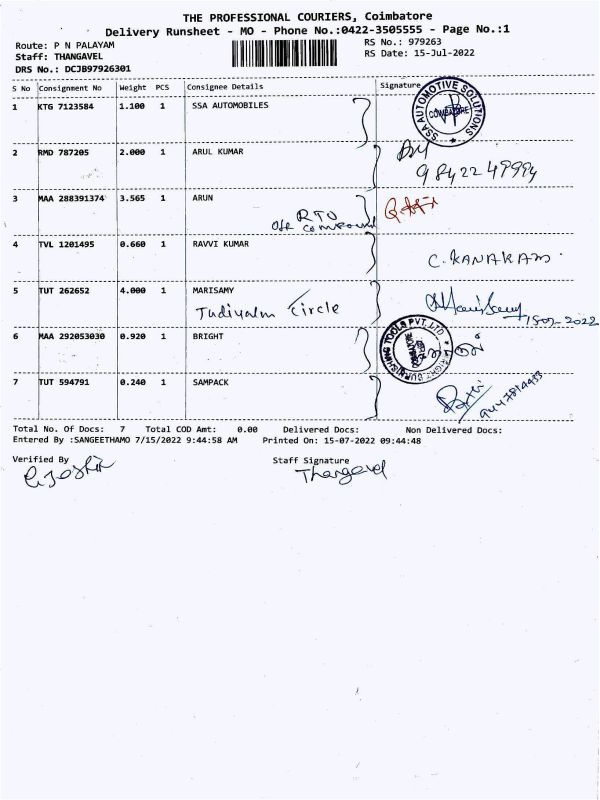 THE PROFESSIONAL COURIERS, Coimbatore
Delivery Runsheet - MO - Phone No.:0422-3505555 - Page No.:1
Route: P N PALAYAM
RS No.: 979263
Staff: THANGAVEL
RS Date: 15-Jul-2022
DRS No.: DCJB97926301
S No Consignment No Weight PCS Consignee Details Signature
1 KTG 7123584 1.100 1 SSA AUTOMOBILES
SSA AUTOMOTIVE SOLUTIONS
COIMBATORE
2 RMD 787205 2.000 1 ARUL KUMAR
9842249994
3 MAA 288391374 3.565 1 ARUN
RTO
Compound
4 TVL 1201495 0.660 1 RAVVI KUMAR
C. KANAKAM.
5 TUT 262652 4.000 1 MARISAMY
Tudiyalm Circle
6 MAA 292053030 0.920 1 BRIGHT
BRIGHT BURNISHING TOOLS PVT. LTD
7 TUT 594791 0.240 1 SAMPACK
Total No. Of Docs: 7 Total COD Amt: 0.00 Delivered Docs: Non Delivered Docs:
Entered By :SANGEETHAMO 7/15/2022 9:44:58 AM Printed On: 15-07-2022 09:44:48
Verified By Staff Signature
Thangavel